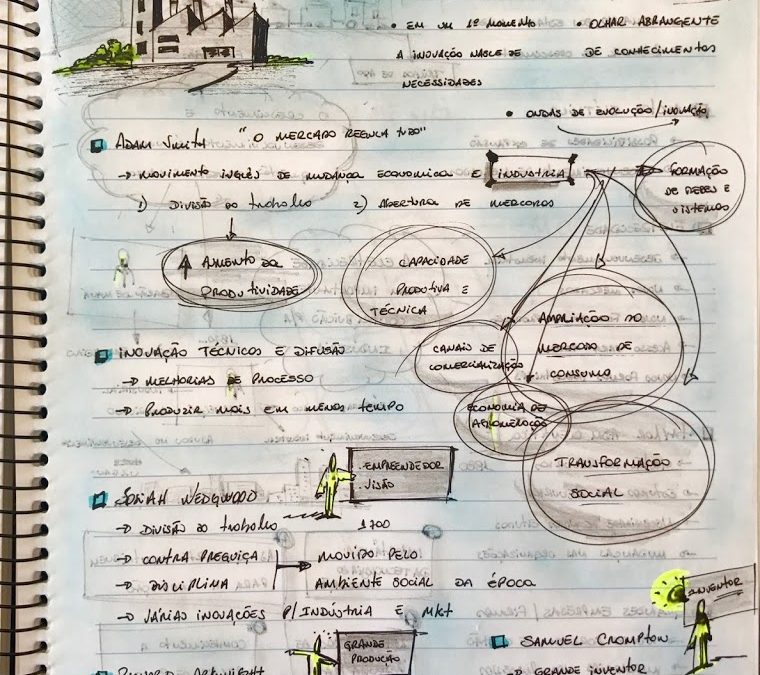 • EM UM 1º MOMENTO
A INOVAÇÃO NASCE DE
NECESSIDADES
• OLHAR ABRANGENTE
DE CONHECIMENTOS
• ONDAS DE EVOLUÇÃO/INOVAÇÃO
ADAM SMITH "O MERCADO REGULA TUDO"
→ MOVIMENTO INGLÊS DE MUDANÇA ECONOMICA E INDÚSTRIA
FORMAÇÃO
DE REDES E
SISTEMAS
1) DIVISÃO DO TRABALHO 2) ABERTURA DE MERCADOS
↑ AUMENTO DA
PRODUTIVIDADE
CAPACIDADE
PRODUTIVA E
TÉCNICA
AMPLIAÇÃO DO
MERCADO DE
CONSUMO
CANAIS DE
COMERCIALIZAÇÃO
ECONOMIA DE
AGLOMERAÇÃO
TRANSFORMAÇÃO
SOCIAL
INOVAÇÃO TÉCNICOS E DIFUSÃO
→ MELHORIAS DE PROCESSO
→ PRODUZIR MAIS EM MENOS TEMPO
EMPREENDEDOR
VISÃO
JOSIAH WEDGWOOD
→ DIVISÃO DO TRABALHO 1700
→ CONTRA PREGUIÇA
→ DISCIPLINA
→ MOVIDO PELO
AMBIENTE SOCIAL DA ÉPOCA
→ VÁRIAS INOVAÇÕES P/INDÚSTRIA E MKT
GRANDE
PRODUÇÃO
RICHARD ARKWRIGHT
INVENTOR
SAMUEL CROMPTON
→ GRANDE INVENTOR